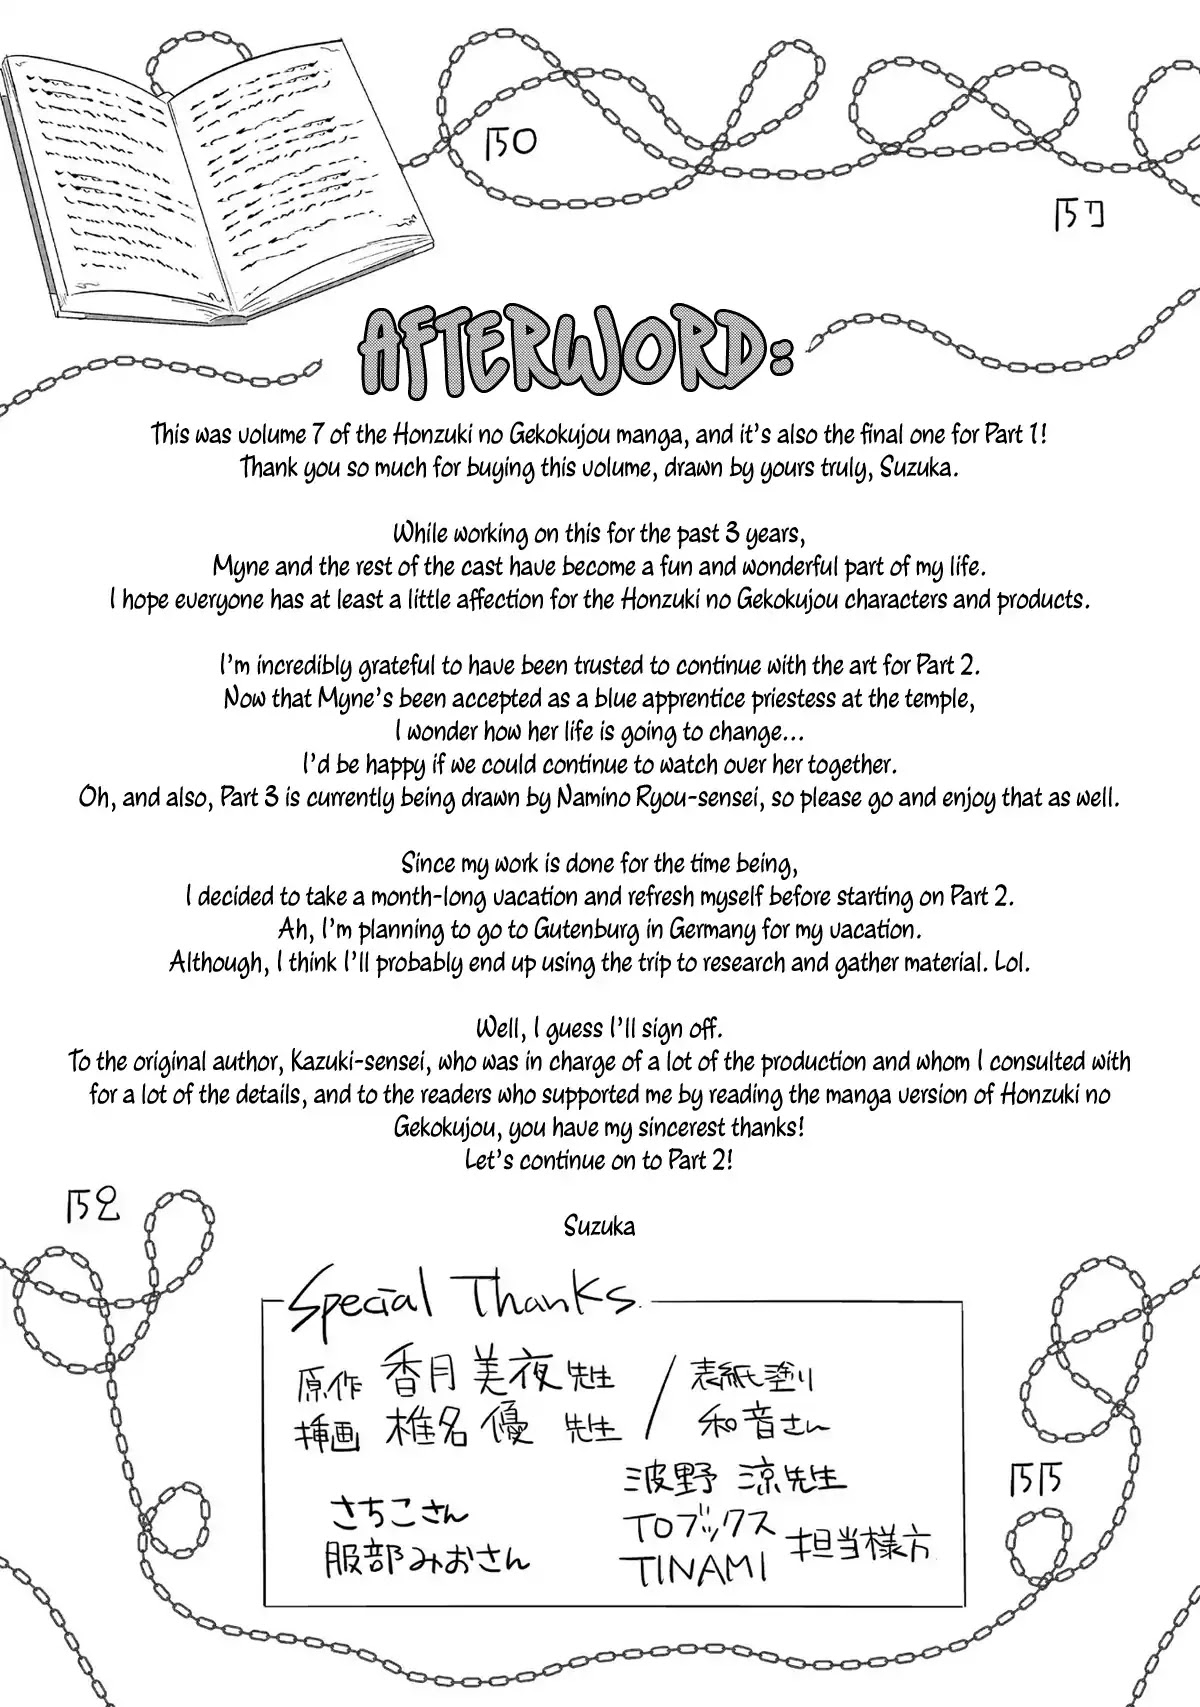 AFTERWORD:
This was volume 7 of the Honzuki no Gekokujou manga, and it's also the final one for Part 1!
Thank you so much for buying this volume, drawn by yours truly, Suzuka.
While working on this for the past 3 years,
Myne and the rest of the cast have become a fun and wonderful part of my life.
I hope everyone has at least a little affection for the Honzuki no Gekokujou characters and products.
I'm incredibly grateful to have been trusted to continue with the art for Part 2.
Now that Myne's been accepted as a blue apprentice priestess at the temple,
I wonder how her life is going to change...
I'd be happy if we could continue to watch over her together.
Oh, and also, Part 3 is currently being drawn by Namino Ryou-sensei, so please go and enjoy that as well.
Since my work is done for the time being,
I decided to take a month-long vacation and refresh myself before starting on Part 2.
Ah, I'm planning to go to Gutenburg in Germany for my vacation.
Although, I think I'll probably end up using the trip to research and gather material. Lol.
Well, I guess I'll sign off.
To the original author, Kazuki-sensei, who was in charge of a lot of the production and whom I consulted with
for a lot of the details, and to the readers who supported me by reading the manga version of Honzuki no
Gekokujou, you have my sincerest thanks!
Let's continue on to Part 2!
Suzuka
Special Thanks
原作 香月美夜 先生 / 表紙塗り
挿画 椎名 優 先生 / 和音さん
波野 涼先生
さちこさん TOブックス
服部みおさん TINAMI 担当様方